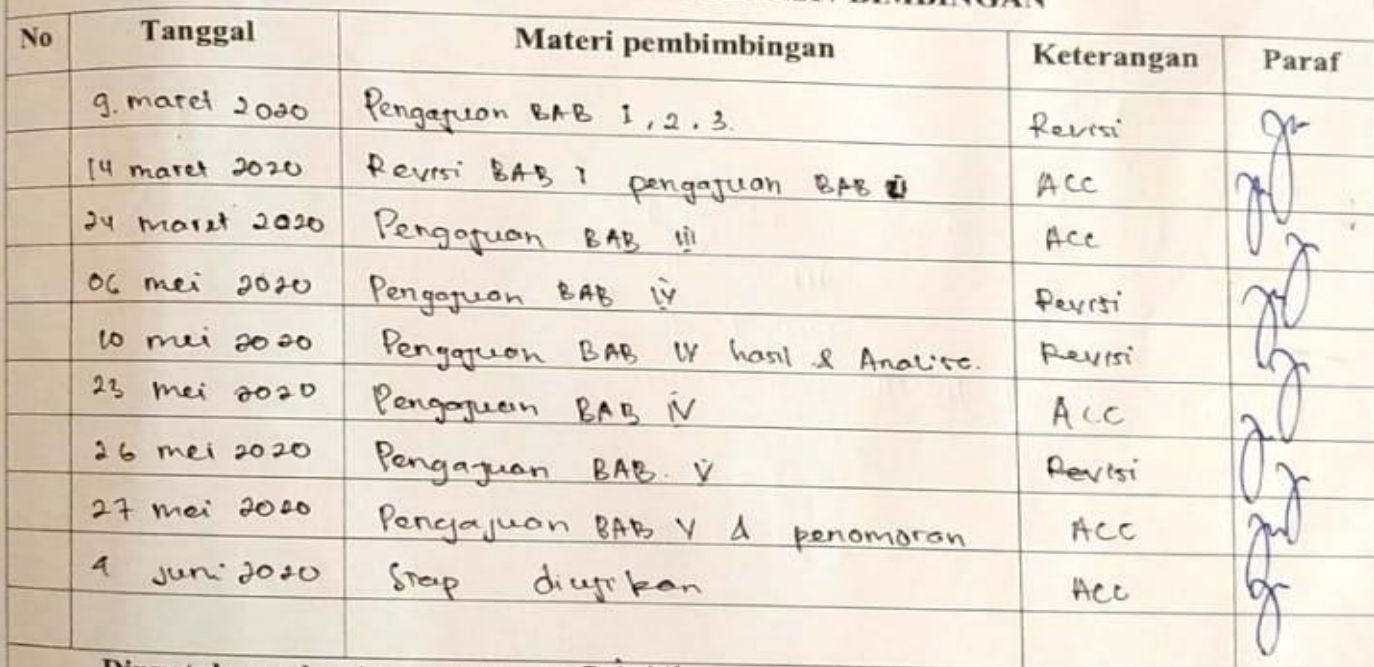 BIMBINGAN
No Tanggal Materi pembimbingan Keterangan Paraf
9. maret 2020 Pengajuan BAB I, 2, 3. Revisi
14 maret 2020 Revisi BAB I pengajuan BAB II ACC
24 maret 2020 Pengajuan BAB III ACC
06 mei 2020 Pengajuan BAB IV Revisi
10 mei 2020 Pengajuan BAB IV hasil & Analise. Revisi
23 mei 2020 Pengajuan BAB IV ACC
26 mei 2020 Pengajuan BAB. V Revisi
27 mei 2020 Pengajuan BAB V & penomoran ACC
4 juni 2020 Siap diujikan ACC